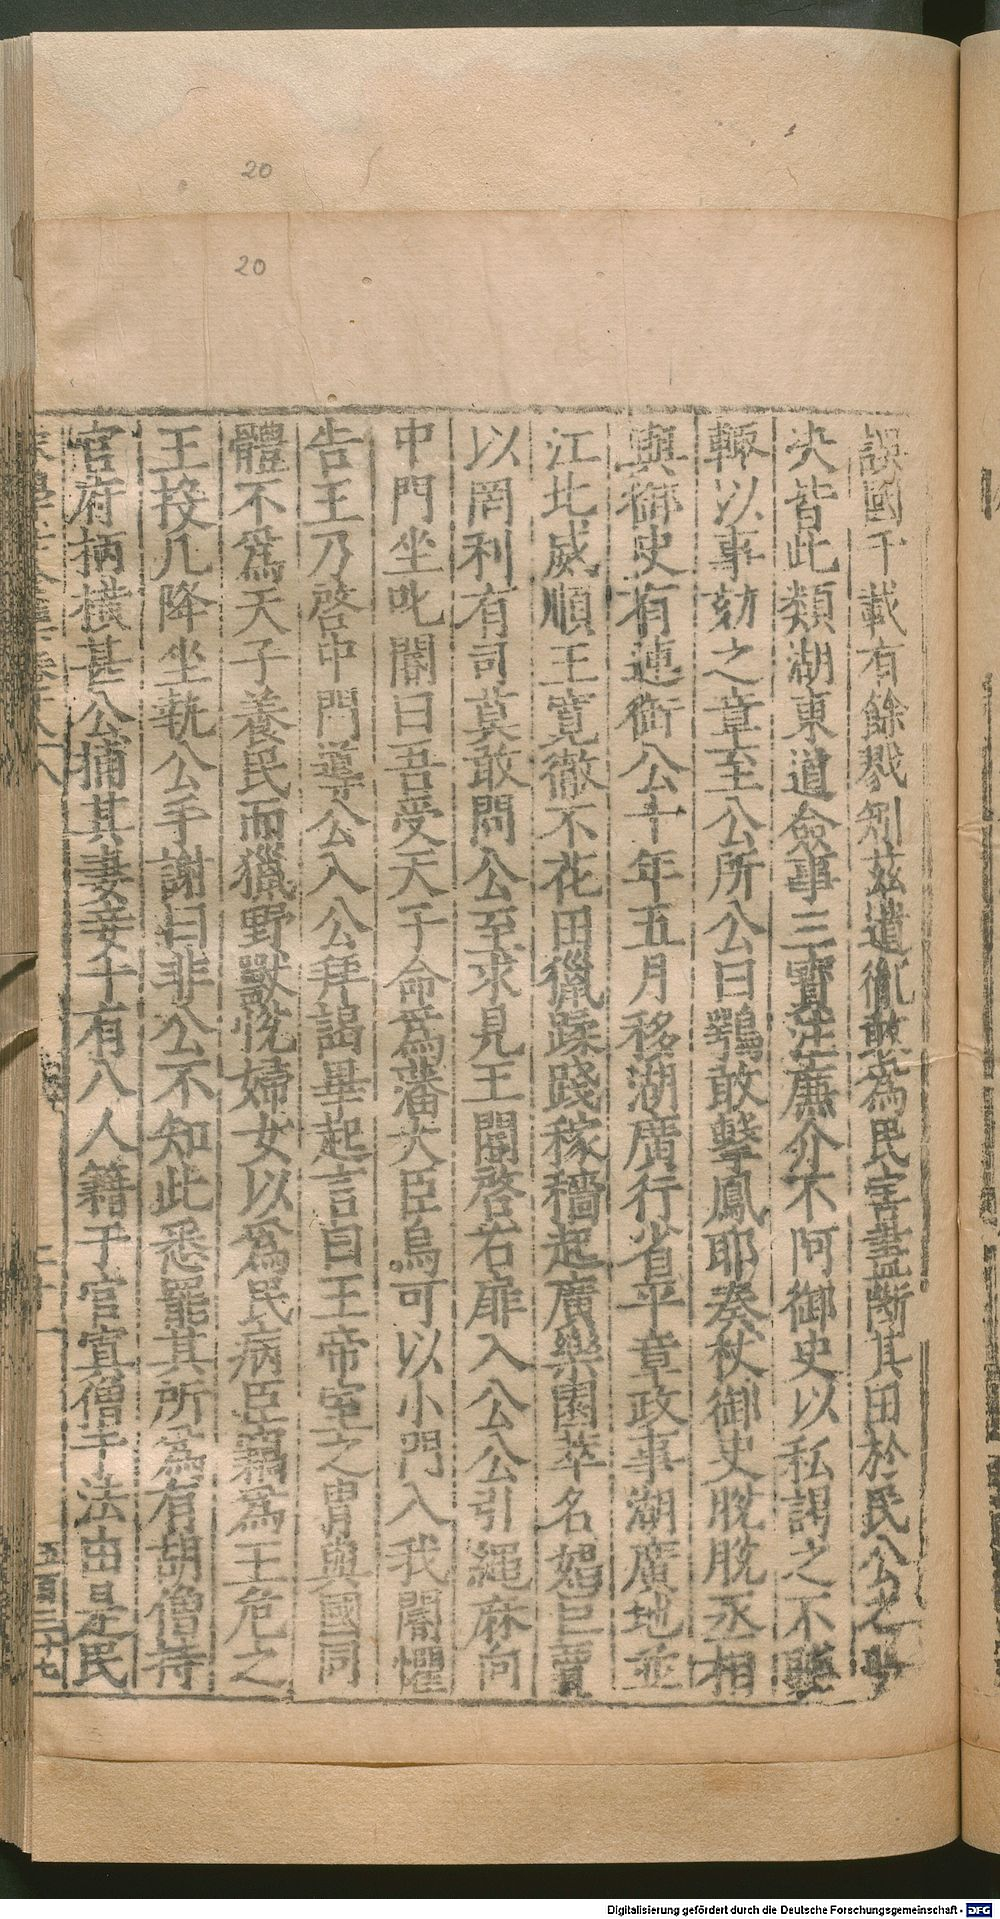 20
20
誤國干載有餘戮矧茲遺胤敢為民害盡斷其田於民公之
决皆此類湖東道僉事三寶住廉介不阿御史以私謁之不聽
輙以事劾之章至公所公曰鶚敢擊鳳耶奏杖御史脫脫丞相
與御史有連銜公十年五月移湖廣行省平章政事湖廣地並
江北威順王寛徹不花田獵蹂踐稼穡起廣樂園萃名娼巨賈
以罔利有司莫敢問公至求見王閽啓右扉入公公引繩床向
中門坐叱閽曰吾受天子命爲藩大臣烏可以小門入我閽懼
告王乃啓中門導公入公拜謁畢起言曰王帝室之胄與國同
體不爲天子養民而獵野獸悅婦女以爲民病臣竊爲王危之
王投几降坐執公手謝曰非公不知此悉罷其所爲有胡僧持
官府柄橫甚公捕其妻妾十有八人籍于官寘僧于法由是民
二十
五百三十七
Digitalisierung gefördert durch die Deutsche Forschungsgemeinschaft - DFG